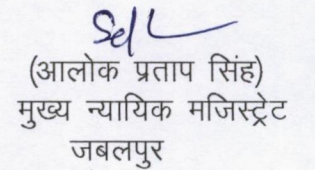 Sd/-
(आलोक प्रताप सिंह)
मुख्य न्यायिक मजिस्ट्रेट
जबलपुर